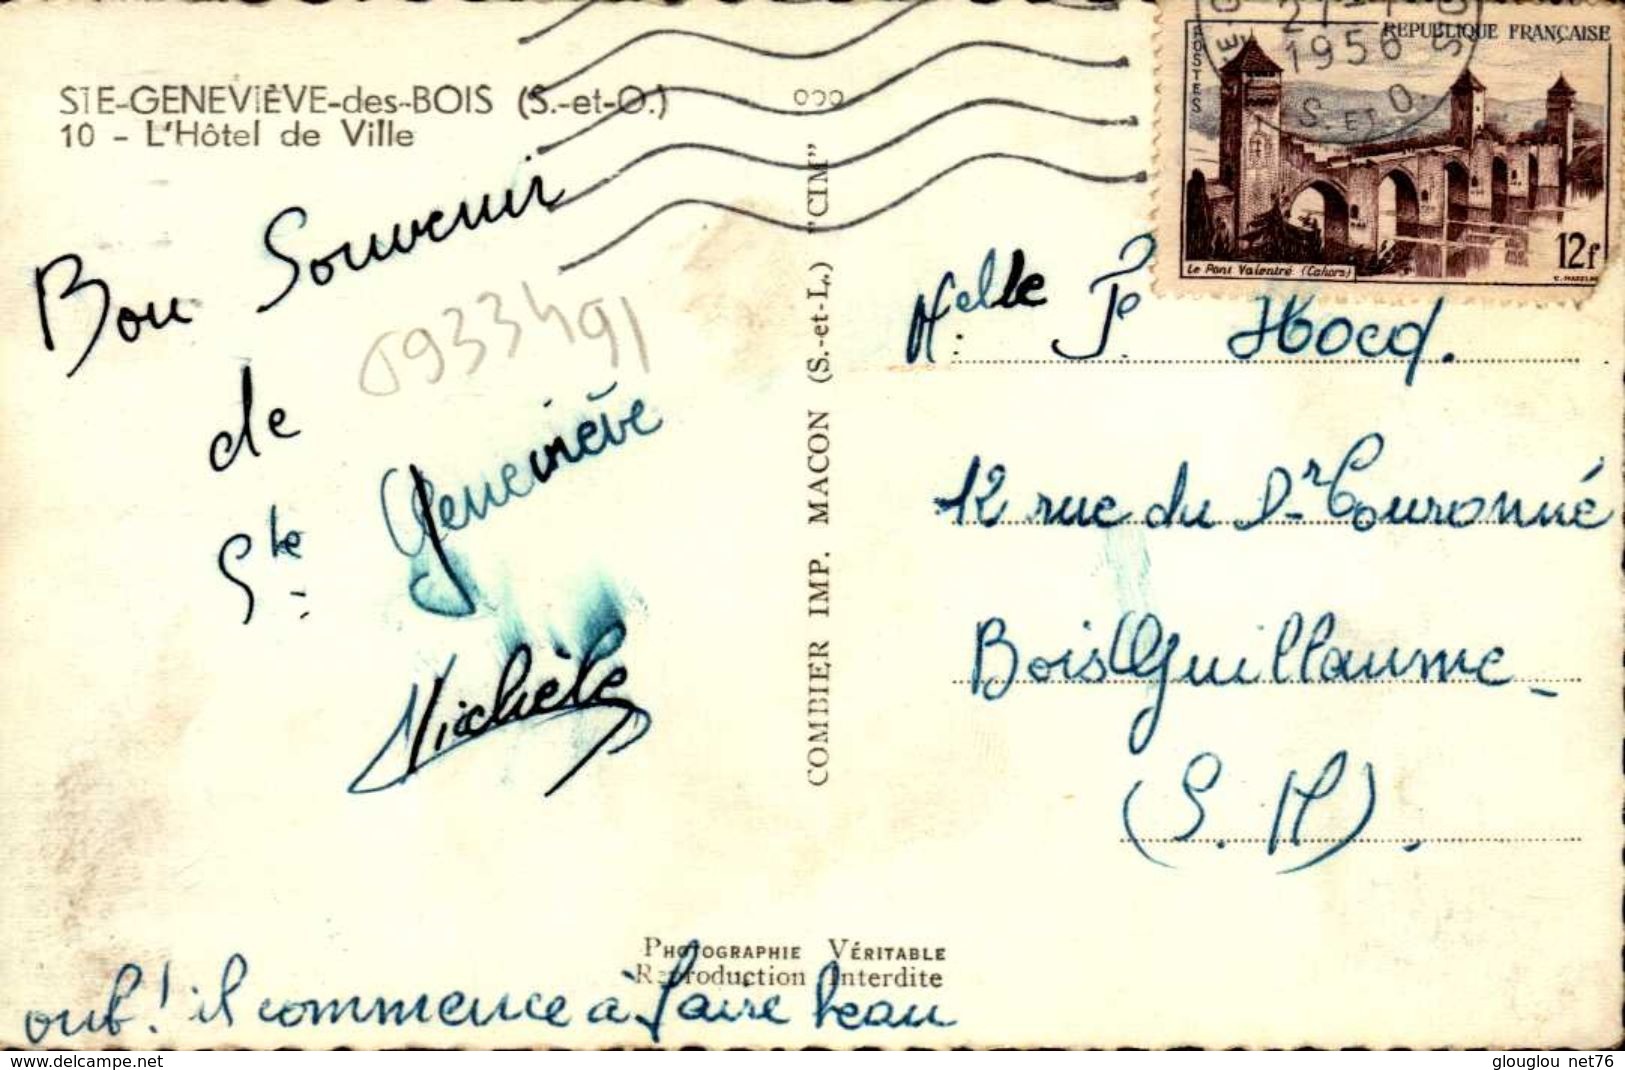 STE-GENEVIÈVE-des-BOIS (S.-et-O.)
10 - L'Hôtel de Ville
Bon Souvenir
de
Ste Geneviève
Michèle
ouf! il commence à faire beau
0933491
COMBIER IMP. MACON (S.-et-L.) "CIM"
PHOTOGRAPHIE VÉRITABLE
Reproduction Interdite
1956
S. ET O.
POSTES
REPUBLIQUE FRANÇAISE
Le Pont Valentré (Cahors)
12f
Melle P. Hocq.
12 rue du Dr Couronné
Bois Guillaume -
(S. M).
delcampe.net
glouglou_net76